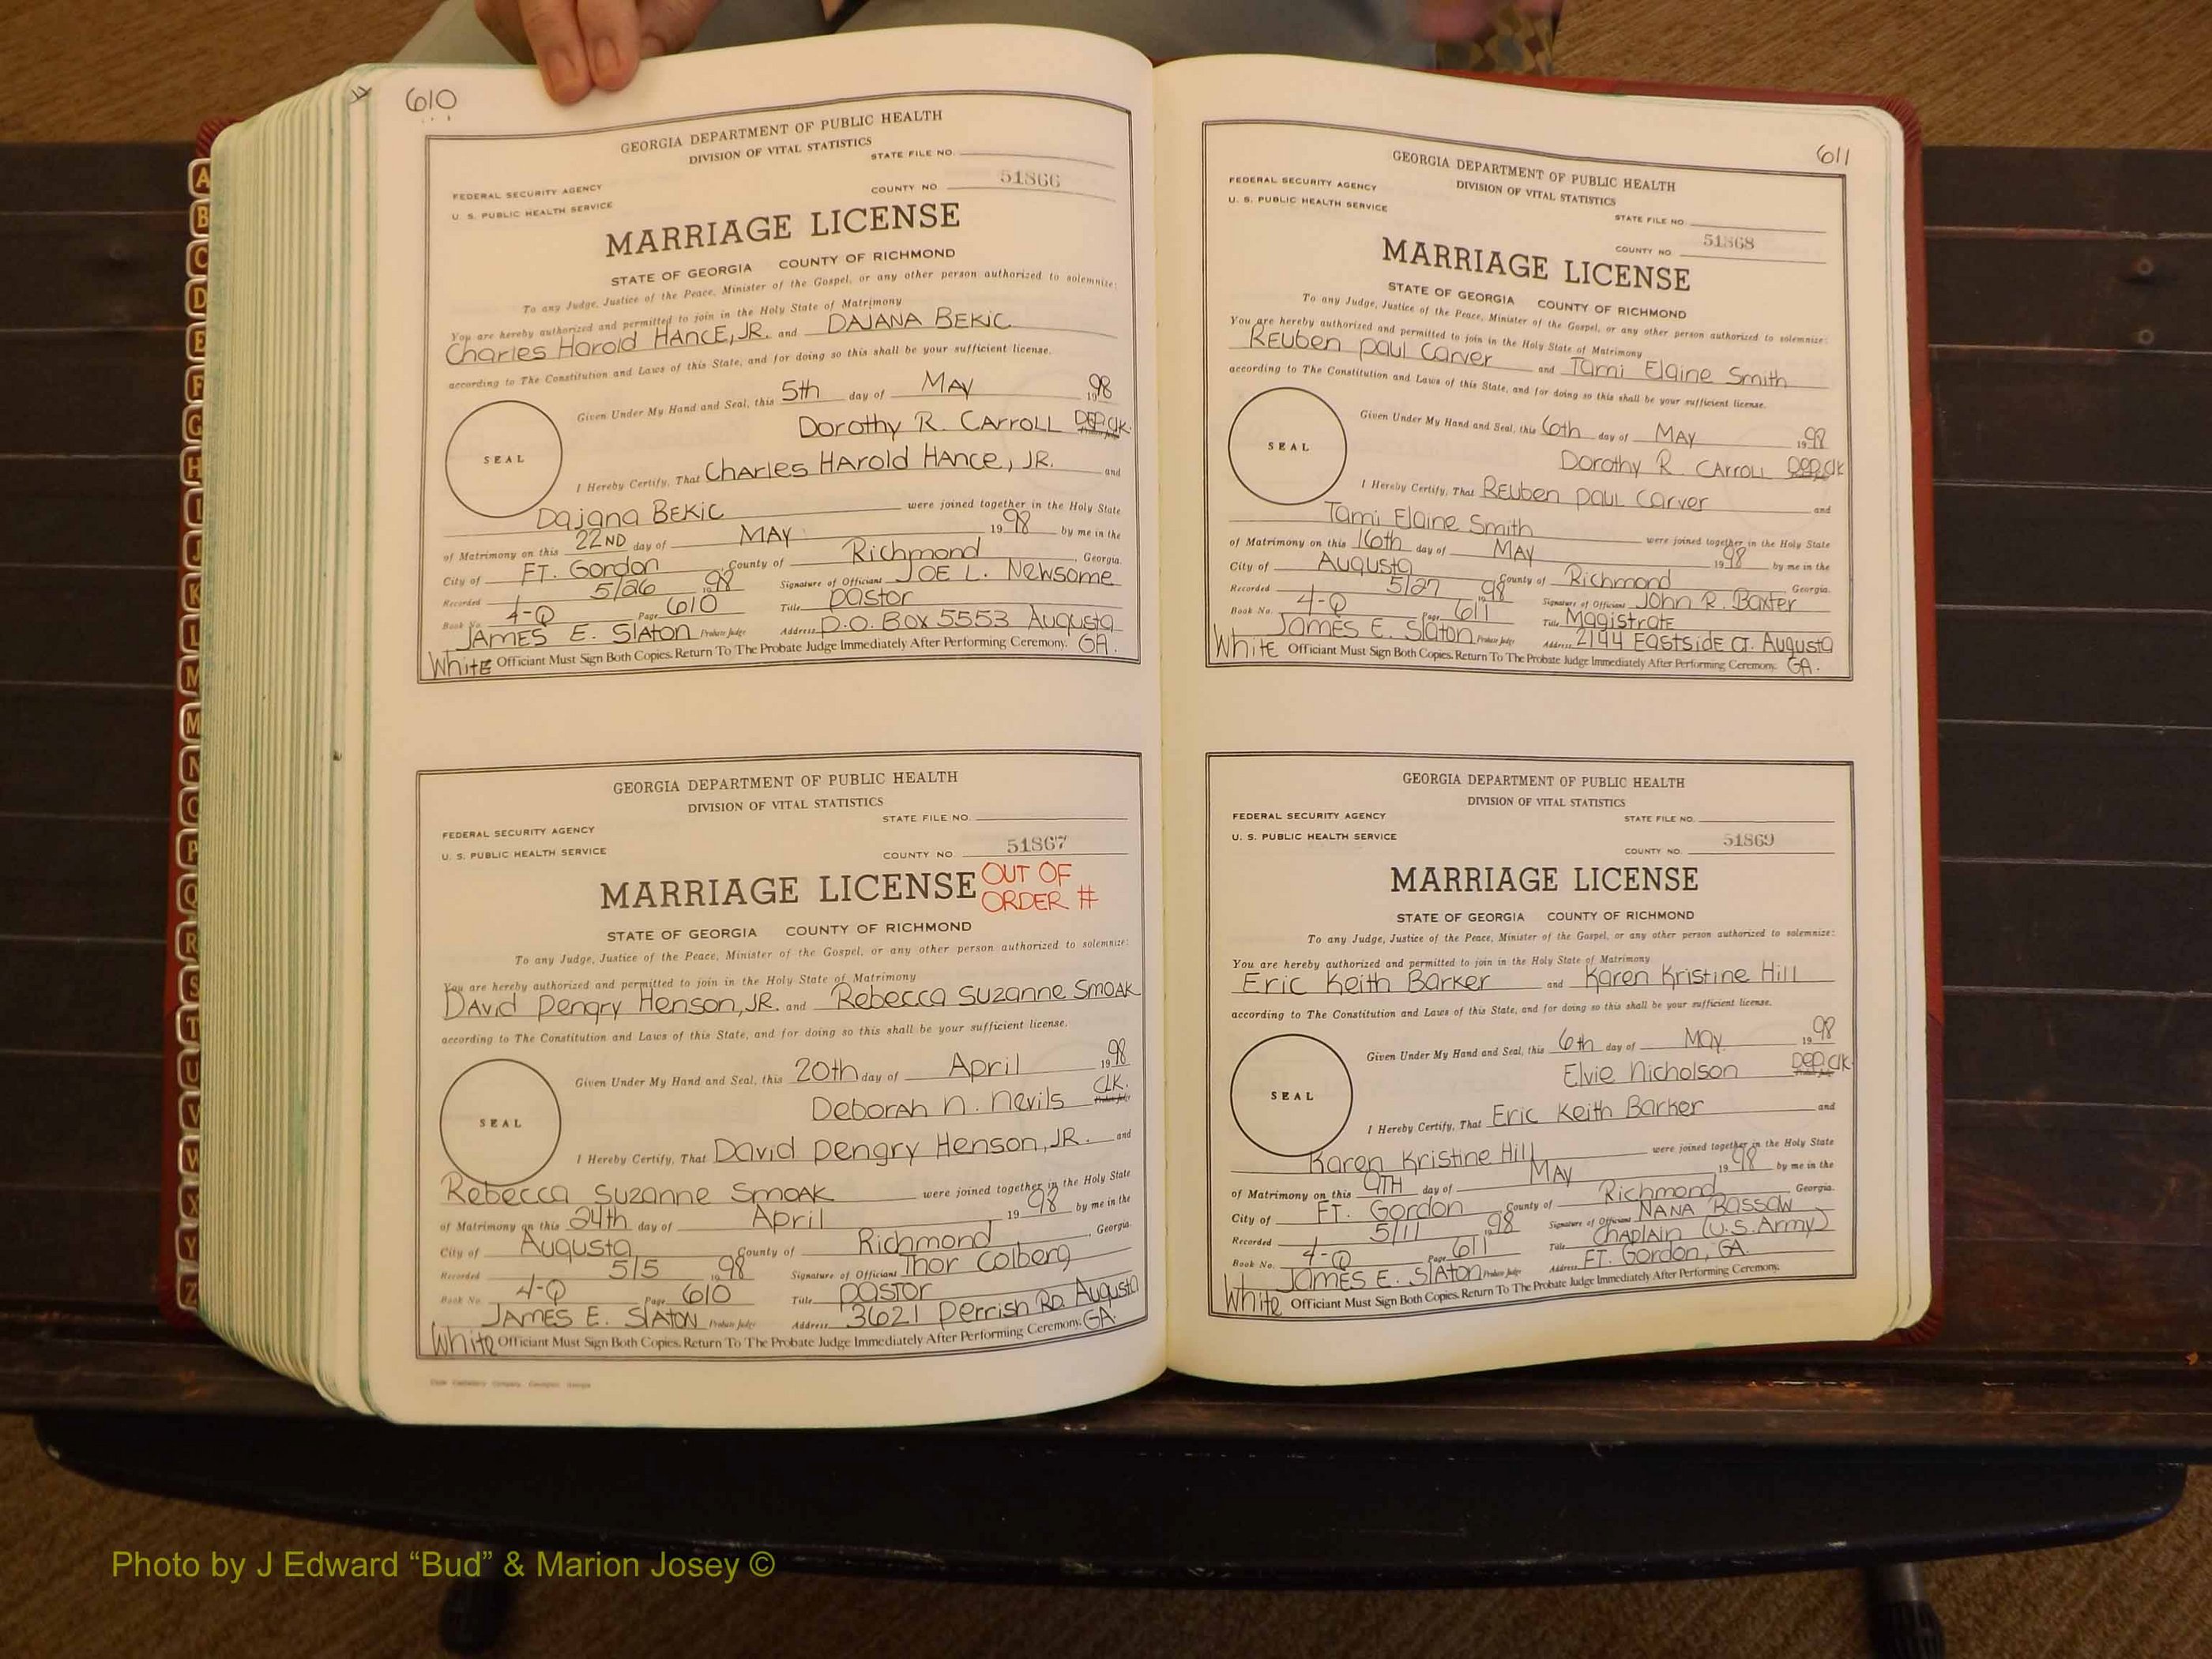 610
GEORGIA DEPARTMENT OF PUBLIC HEALTH
DIVISION OF VITAL STATISTICS
STATE FILE NO.
FEDERAL SECURITY AGENCY
COUNTY NO 51866
U. S. PUBLIC HEALTH SERVICE
MARRIAGE LICENSE
STATE OF GEORGIA COUNTY OF RICHMOND
To any Judge, Justice of the Peace, Minister of the Gospel, or any other person authorized to solemnize:
You are hereby authorized and permitted to join in the Holy State of Matrimony
Charles Harold HANCE, JR. and DAJANA BEKIC
according to The Constitution and Laws of this State, and for doing so this shall be your sufficient license.
Given Under My Hand and Seal, this 5th day of MAY 1998
Dorothy R. CARROLL DEP. CLK.
SEAL
I Hereby Certify, That Charles HAROLD HANCE, JR. and
Dajana BEKIC were joined together in the Holy State
of Matrimony on this 22ND day of MAY 1998 by me in the
City of FT. Gordon County of Richmond Georgia.
Recorded 5/26 1998 Signature of Officiant JOE L. Newsome
Book No. 4-Q Page 610 Title pastor
JAMES E. SLATON Probate Judge Address P.O. BOX 5553 Augusta
White Officiant Must Sign Both Copies. Return To The Probate Judge Immediately After Performing Ceremony. GA.
GEORGIA DEPARTMENT OF PUBLIC HEALTH
DIVISION OF VITAL STATISTICS
STATE FILE NO.
FEDERAL SECURITY AGENCY
U. S. PUBLIC HEALTH SERVICE
COUNTY NO. 51867
MARRIAGE LICENSE OUT OF
ORDER #
STATE OF GEORGIA COUNTY OF RICHMOND
To any Judge, Justice of the Peace, Minister of the Gospel, or any other person authorized to solemnize:
You are hereby authorized and permitted to join in the Holy State of Matrimony
DAVID pengry Henson, JR. and Rebecca SUZANNE SMOAK
according to The Constitution and Laws of this State, and for doing so this shall be your sufficient license.
Given Under My Hand and Seal, this 20th day of April 1998
Deborah N. Nevils CLK.
SEAL
I Hereby Certify, That David pengry Henson, JR. and
Rebecca SUZANNE SMOAK were joined together in the Holy State
of Matrimony on this 24th day of April 1998 by me in the
City of Augusta County of Richmond Georgia.
Recorded 5/5 1998 Signature of Officiant Thor Colberg
Book No. 4-Q Page 610 Title pastor
JAMES E. SLATON Probate Judge Address 3621 perrish RD. Augusta
White Officiant Must Sign Both Copies. Return To The Probate Judge Immediately After Performing Ceremony. GA.
611
GEORGIA DEPARTMENT OF PUBLIC HEALTH
DIVISION OF VITAL STATISTICS
FEDERAL SECURITY AGENCY
U. S. PUBLIC HEALTH SERVICE
STATE FILE NO.
COUNTY NO. 51868
MARRIAGE LICENSE
STATE OF GEORGIA COUNTY OF RICHMOND
To any Judge, Justice of the Peace, Minister of the Gospel, or any other person authorized to solemnize:
You are hereby authorized and permitted to join in the Holy State of Matrimony
REuben paul Carver and Tami Elaine Smith
according to The Constitution and Laws of this State, and for doing so this shall be your sufficient license.
Given Under My Hand and Seal, this 6th day of MAY 1998
Dorothy R. CARROLL DEP. CLK
SEAL
I Hereby Certify, That REuben PAUL Carver and
Tami Elaine Smith were joined together in the Holy State
of Matrimony on this 16th day of MAY 1998 by me in the
City of Augusta County of Richmond Georgia.
Recorded 5/27 1998 Signature of Officiant John R. Baxter
Book No. 4-Q Page 611 Title Magistrate
JAMES E. Slaton Probate Judge Address 2144 Eastside Ct. Augusta
White Officiant Must Sign Both Copies. Return To The Probate Judge Immediately After Performing Ceremony. GA.
GEORGIA DEPARTMENT OF PUBLIC HEALTH
DIVISION OF VITAL STATISTICS
FEDERAL SECURITY AGENCY
STATE FILE NO.
U. S. PUBLIC HEALTH SERVICE
COUNTY NO. 51869
MARRIAGE LICENSE
STATE OF GEORGIA COUNTY OF RICHMOND
To any Judge, Justice of the Peace, Minister of the Gospel, or any other person authorized to solemnize:
You are hereby authorized and permitted to join in the Holy State of Matrimony
Eric Keith Barker and Karen Kristine Hill
according to The Constitution and Laws of this State, and for doing so this shall be your sufficient license.
Given Under My Hand and Seal, this 6th day of MAY 1998
Elvie Nicholson DEP. CLK
SEAL
I Hereby Certify, That Eric Keith Barker and
Karen Kristine Hill were joined together in the Holy State
of Matrimony on this 9TH day of MAY 1998 by me in the
City of FT. Gordon County of Richmond Georgia.
Recorded 5/11 1998 Signature of Officiant NANA BASSAW
Book No. 4-Q Page 611 Title Chaplain (U.S. Army)
JAMES E. SLATON Probate Judge Address FT. Gordon, GA.
White Officiant Must Sign Both Copies. Return To The Probate Judge Immediately After Performing Ceremony.
A
B
C
D
E
F
G
H
I
J
K
L
M
M
N
O
P
Q
R
S
T
U
V
W
X
Y
Z
Photo by J Edward “Bud” & Marion Josey ©